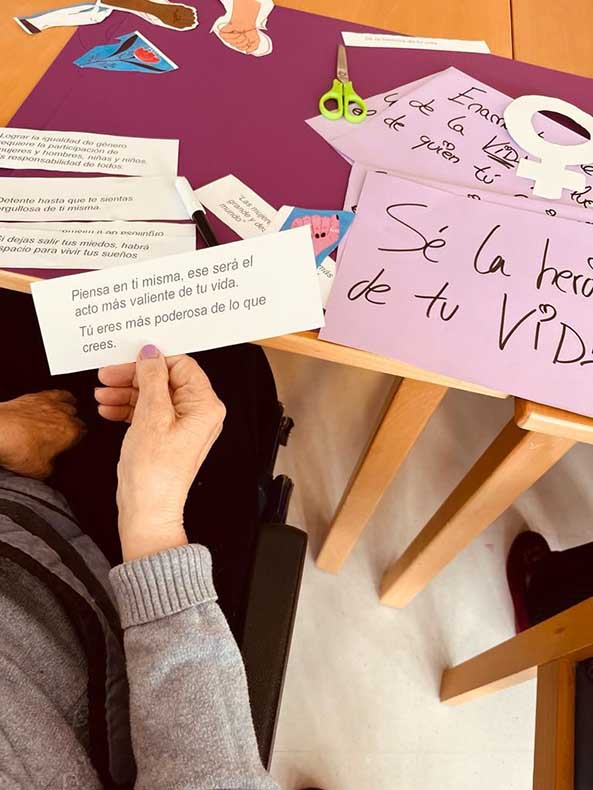 Sé la heroína de tu vida
Lograr la igualdad de género
requiere la participación de
mujeres y hombres, niñas y niños.
responsabilidad de todos.
Detente hasta que te sientas
orgullosa de ti misma.
Si dejas salir tus miedos, habrá
espacio para vivir tus sueños
"Las mujeres
grande y
mundo"
Piensa en ti misma, ese será el
acto más valiente de tu vida.
Tú eres más poderosa de lo que
crees.
de la
de quién tú
Sé la
de tu VIDA